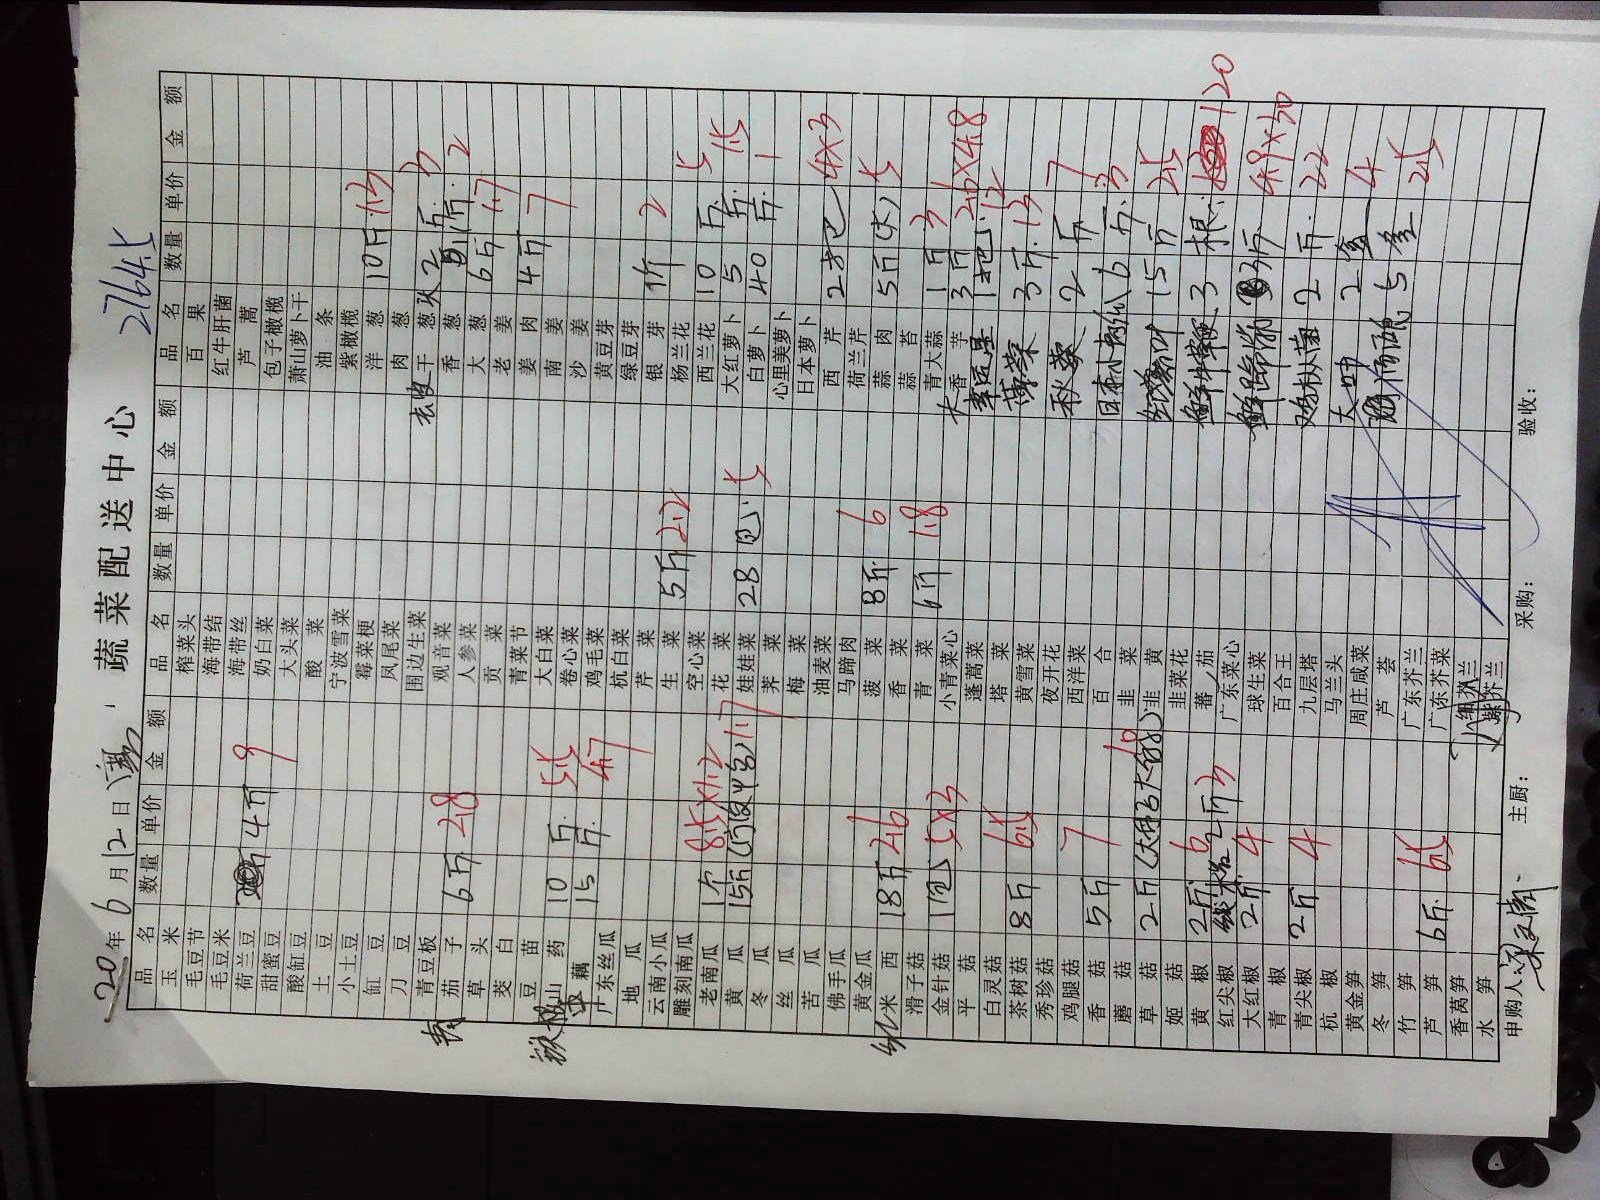 蔬菜配送中心
2764.5
20 年 6 月 12 日
品名 数量 单价 金额 品名 数量 单价 金额 品名 数量 单价 金额
玉米 榨菜头 百果
毛豆节 海带结 红牛肝菌
毛豆米 海带丝 芦蒿
荷兰豆 4斤 9 奶白菜 包子橄榄
甜蜜豆 大头菜 萧山萝卜干
酸缸豆 酸菜 油条
土豆 宁波雪菜 紫橄榄
小土豆 霉菜梗 洋葱 10斤 1.3
缸豆 凤尾菜 肉葱
刀豆 围边生菜 干葱 2斤 3
青豆板 观音菜 香葱 1斤 2
茄子 6斤 2.8 人参菜 大葱 6斤 1.7
草头 贡菜 老姜 4斤 7
茭白 青菜节 姜肉
豆苗 大白菜 南姜
山药 10斤 5.5 卷心菜 沙姜
藕 15斤 4.7 鸡毛菜 黄豆芽
广东丝瓜 杭白菜 绿豆芽
地瓜 芹菜 银芽 1斤 2
云南小瓜 生菜 5斤 2.2 杨兰花
雕刻南瓜 空心菜 西兰花 10斤 5
老南瓜 1个 8.5×1.2 花菜 大红萝卜 5斤 1.5
黄瓜 15斤 1.7 娃娃菜 28包 5 白萝卜 40斤 1
冬瓜 荠菜 心里美萝卜
丝瓜 梅菜 日本萝卜
苦瓜 油麦菜 西芹 2把 4×3
佛手瓜 马蹄肉 荷兰芹
黄金瓜 菠菜 8斤 6 蒜肉 5斤 5
米西 18斤 2.6 香菜 蒜苔
滑子菇 青菜 6斤 1.8 青大蒜 1斤 3
金针菇 1包 5×3 小青菜心 香芋 3斤 2.6×4.8
平菇 蓬蒿菜 1把 12
白灵菇 塔菜 3斤 13
茶树菇 8斤 6.5 黄雪菜
秀珍菇 夜开花 秋葵 2斤 7
鸡腿菇 西洋菜
香菇 5斤 7 百合 日本小南瓜 6斤 3
蘑菇 韭菜
草菇 2斤 10 韭黄 15斤 2.5
姬菇 韭菜花
黄椒 2斤 6 蕃茄 3根 120
红尖椒 2斤 3 广东菜心
大红椒 2斤 4 球生菜 3斤 4.9×30
青椒 百合王
青尖椒 2斤 4 九层塔 鸡枞菌 2斤 22
杭椒 马兰头
黄金笋 周庄咸菜 大叶 2盒 4
冬笋 芦荟
竹笋 广东芥兰 5盒 2.5
芦笋 6斤 6.5 广东芥菜
香莴笋 细芥兰
水笋 紫芥兰
申购人: 主厨: 采购: 验收: